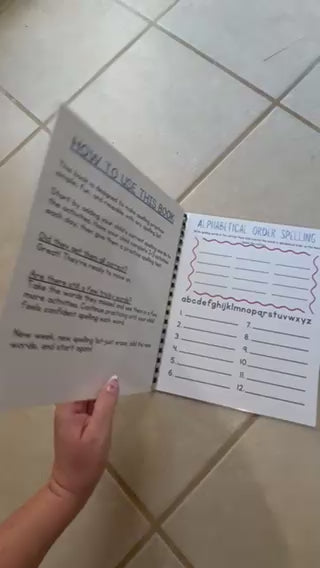 HOW TO USE THIS BOOK
This book is designed to make spelling practice
simple, fun, and reusable with any spelling list.
Start by adding your child's current spelling words to
the activities. Have your child complete
each day, then give them a practice spelling test.
Did they get them all correct?
Great! They're ready to move on.
Are there still a few tricky words?
Take the words they missed and use them in a few
more activities. Continue practicing until your child
feels confident spelling each word.
New week, new spelling list-just erase, add the new
words, and start again!
ALPHABETICAL ORDER SPELLING
abcdefghijklmnopqrstuvwxyz
1.
2.
3.
4.
5.
6.
7.
8.
9.
10.
11.
12.